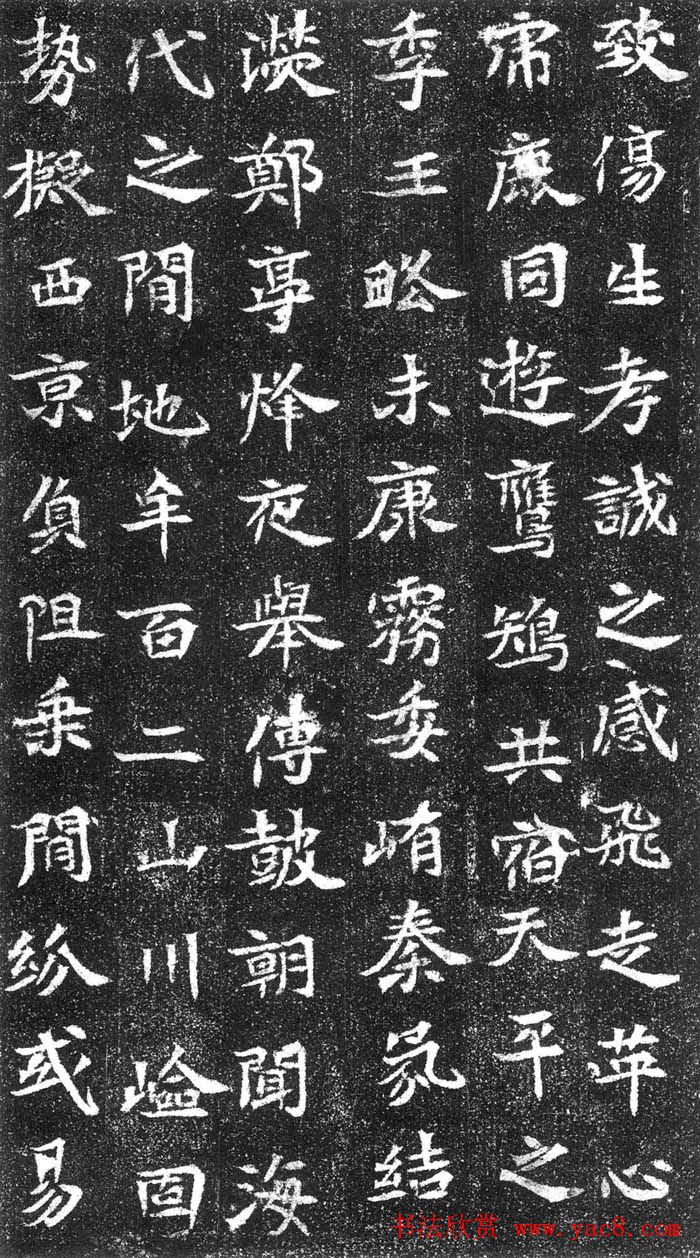 致傷生孝誠之感飛走革心
鹿同遊鷹鴙共宿天平之
季王略未康霧委崤秦氛結
濙鄭亭烽夜舉傳鼓朝聞海
代之間地牟百二山川嶮固
勢擬西京負阻乘間紛或易
书法欣赏 www.yac8.com